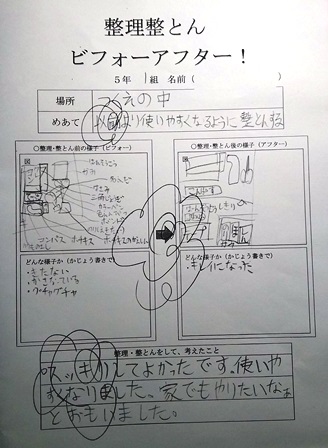 整理整とん
ビフォーアフター!
5年 1組 名前( )
場所 つくえの中
めあて 以前より使いやすくなるように整とんする
○整理・整とん前の様子(ビフォー)
○整理・整とん後の様子(アフター)
図
図
コンパス ホチキス
どんな様子か(かじょう書きで)
・きたない
・かさなっている
・グチャグチャ
どんな様子か(かじょう書きで)
・キレイになった
整理・整とんをして、考えたこと
スッキリしてよかったです。使いや
すくなりました。家でもやりたいなぁ
とおもいました。